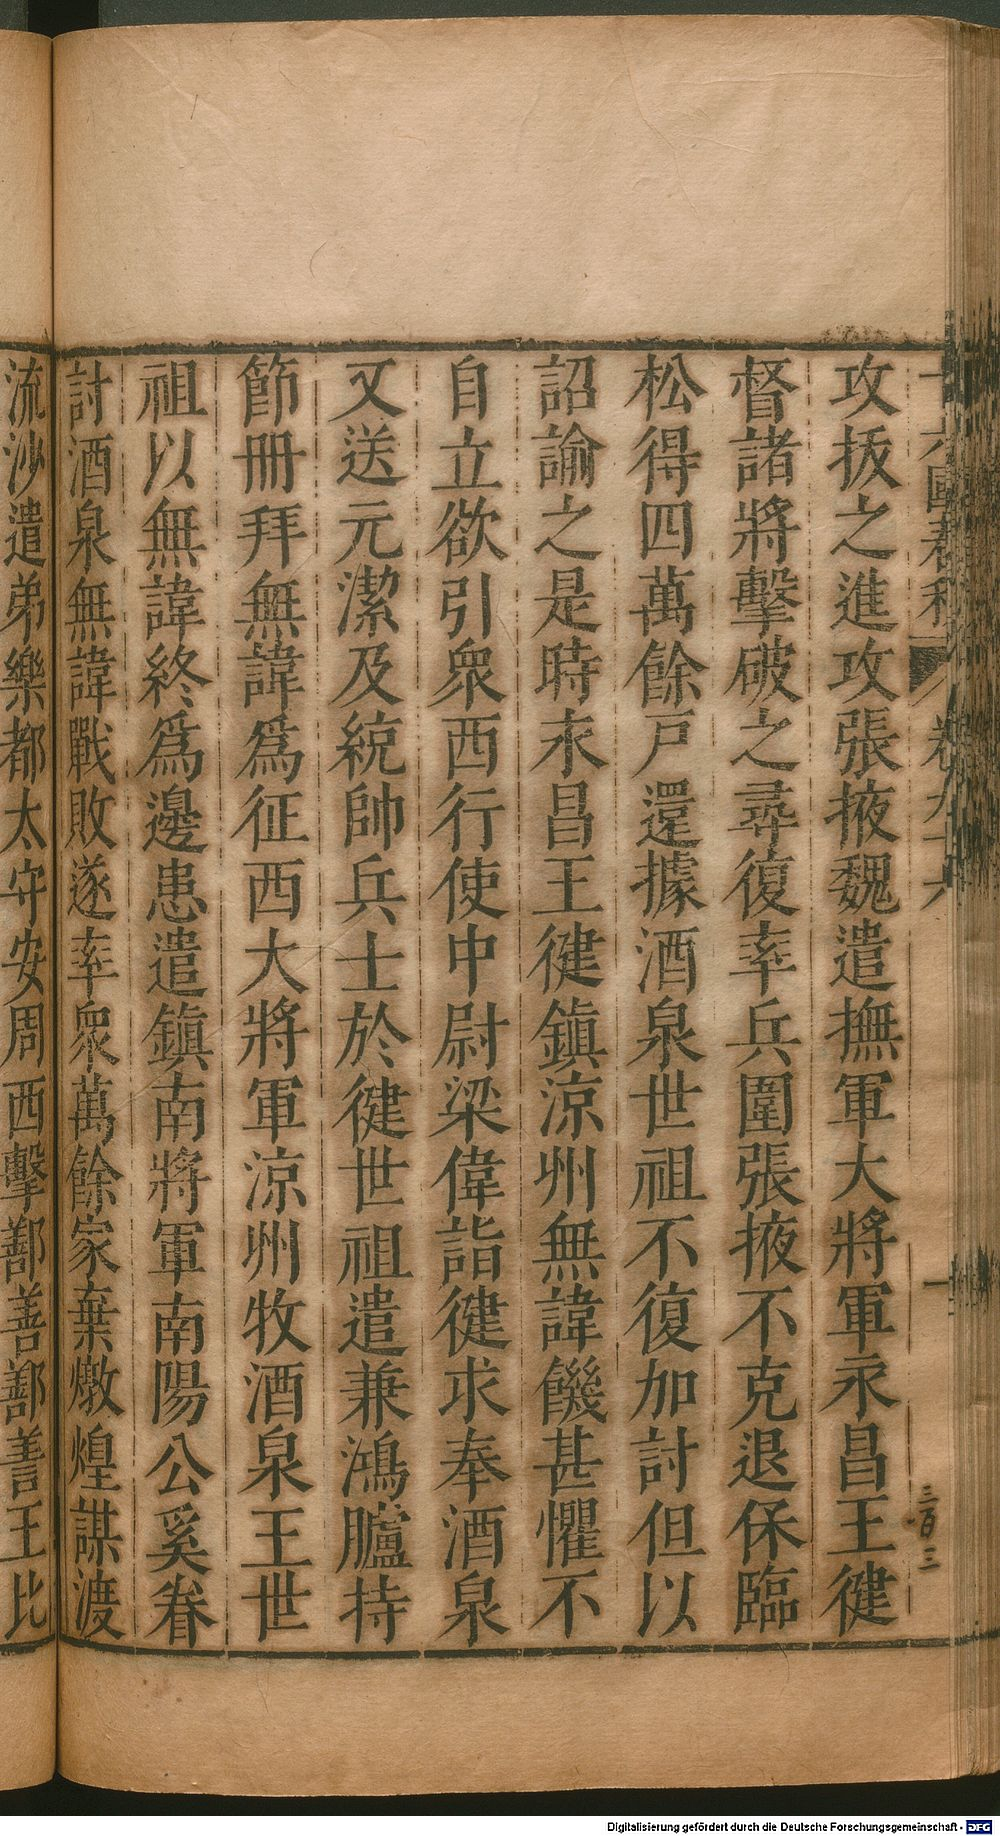 十六國春秋 卷九十六 一
三百三
攻㧞之進攻張掖魏遣撫軍大將軍永昌王健
督諸將擊破之尋復率兵圍張掖不克退保臨
松得四萬餘戸還據酒泉世祖不復加討但以
詔諭之是時永昌王健鎮涼州無諱饑甚懼不
自立欲引衆西行使中尉梁偉詣健求奉酒泉
又送元潔及統帥兵士於健世祖遣兼鴻臚持
節册拜無諱爲征西大將軍涼州牧酒泉王世
祖以無諱終爲邊患遣鎮南將軍南陽公奚眷
討酒泉無諱戰敗遂率衆萬餘家棄燉煌謀渡
流沙遣弟樂都太守安周西擊鄯善鄯善王比
Digitalisierung gefördert durch die Deutsche Forschungsgemeinschaft - DFG